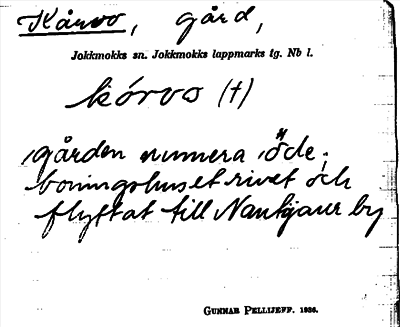 Kårvo, gård,
Jokkmokks sn. Jokkmokks lappmarks tg. Nb l.
kórvo (t)
gården numera öde;
boningshuset rivet och
flyttat till Nautijaur by
GUNNAR PELLIJEFF. 1936.